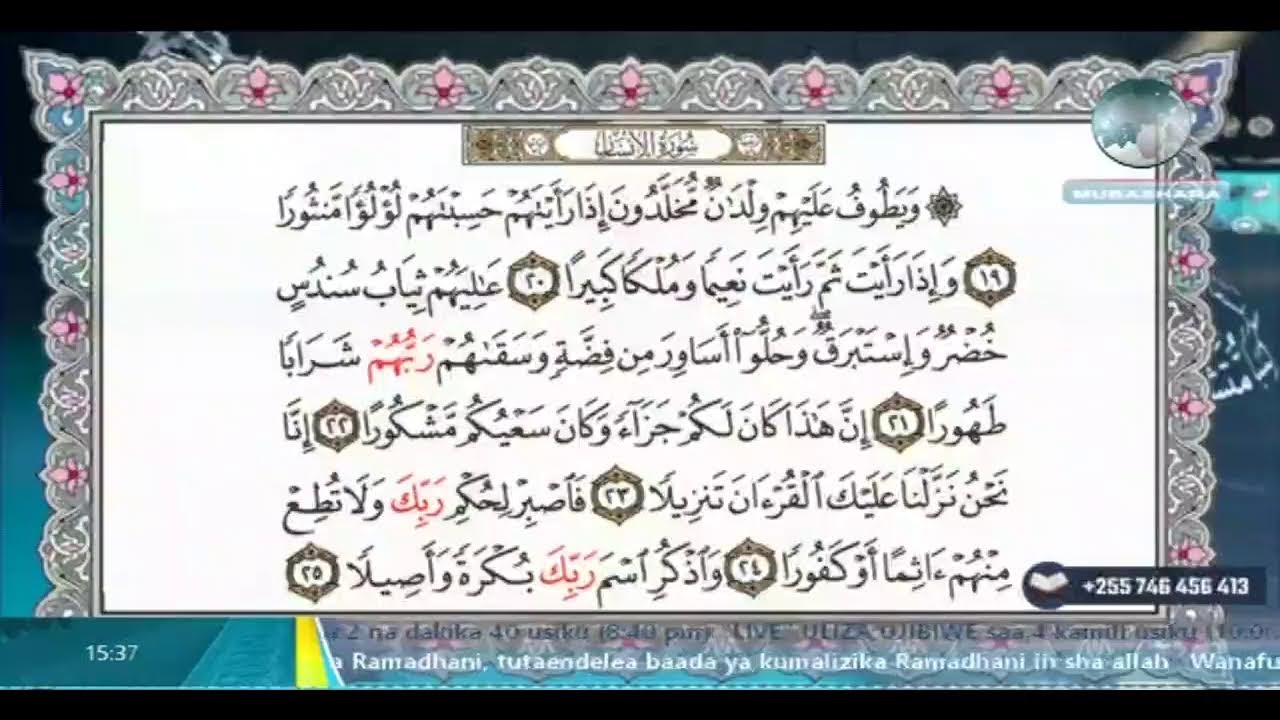 سورة الإنسان
MUBASHARA
۞ وَيَطُوفُ عَلَيْهِمْ وِلْدَٰنٌ مُّخَلَّدُونَ إِذَا رَأَيْتَهُمْ حَسِبْتَهُمْ لُؤْلُؤًا مَّنثُورًا
١٩ وَإِذَا رَأَيْتَ ثَمَّ رَأَيْتَ نَعِيمًا وَمُلْكًا كَبِيرًا ٢٠ عَٰلِيَهُمْ ثِيَابُ سُندُسٍ
خُضْرٌ وَإِسْتَبْرَقٌ ۖ وَحُلُّوٓا۟ أَسَاوِرَ مِن فِضَّةٍ وَسَقَىٰهُمْ رَبُّهُمْ شَرَابًا
طَهُورًا ٢١ إِنَّ هَٰذَا كَانَ لَكُمْ جَزَآءً وَكَانَ سَعْيُكُم مَّشْكُورًا ٢٢ إِنَّا
نَحْنُ نَزَّلْنَا عَلَيْكَ ٱلْقُرْءَانَ تَنزِيلًا ٢٣ فَٱصْبِرْ لِحُكْمِ رَبِّكَ وَلَا تُطِعْ
مِنْهُمْ ءَاثِمًا أَوْ كَفُورًا ٢٤ وَٱذْكُرِ ٱسْمَ رَبِّكَ بُكْرَةً وَأَصِيلًا ٢٥
+255 746 456 413
2 na dakika 40 usiku (8:40 pm) "LIVE" ULIZA UJIBIWE saa 4 kamili usiku (10:0
15:37
a Ramadhani, tutaendelea baada ya kumalizika Ramadhani in sha allah Wanafu